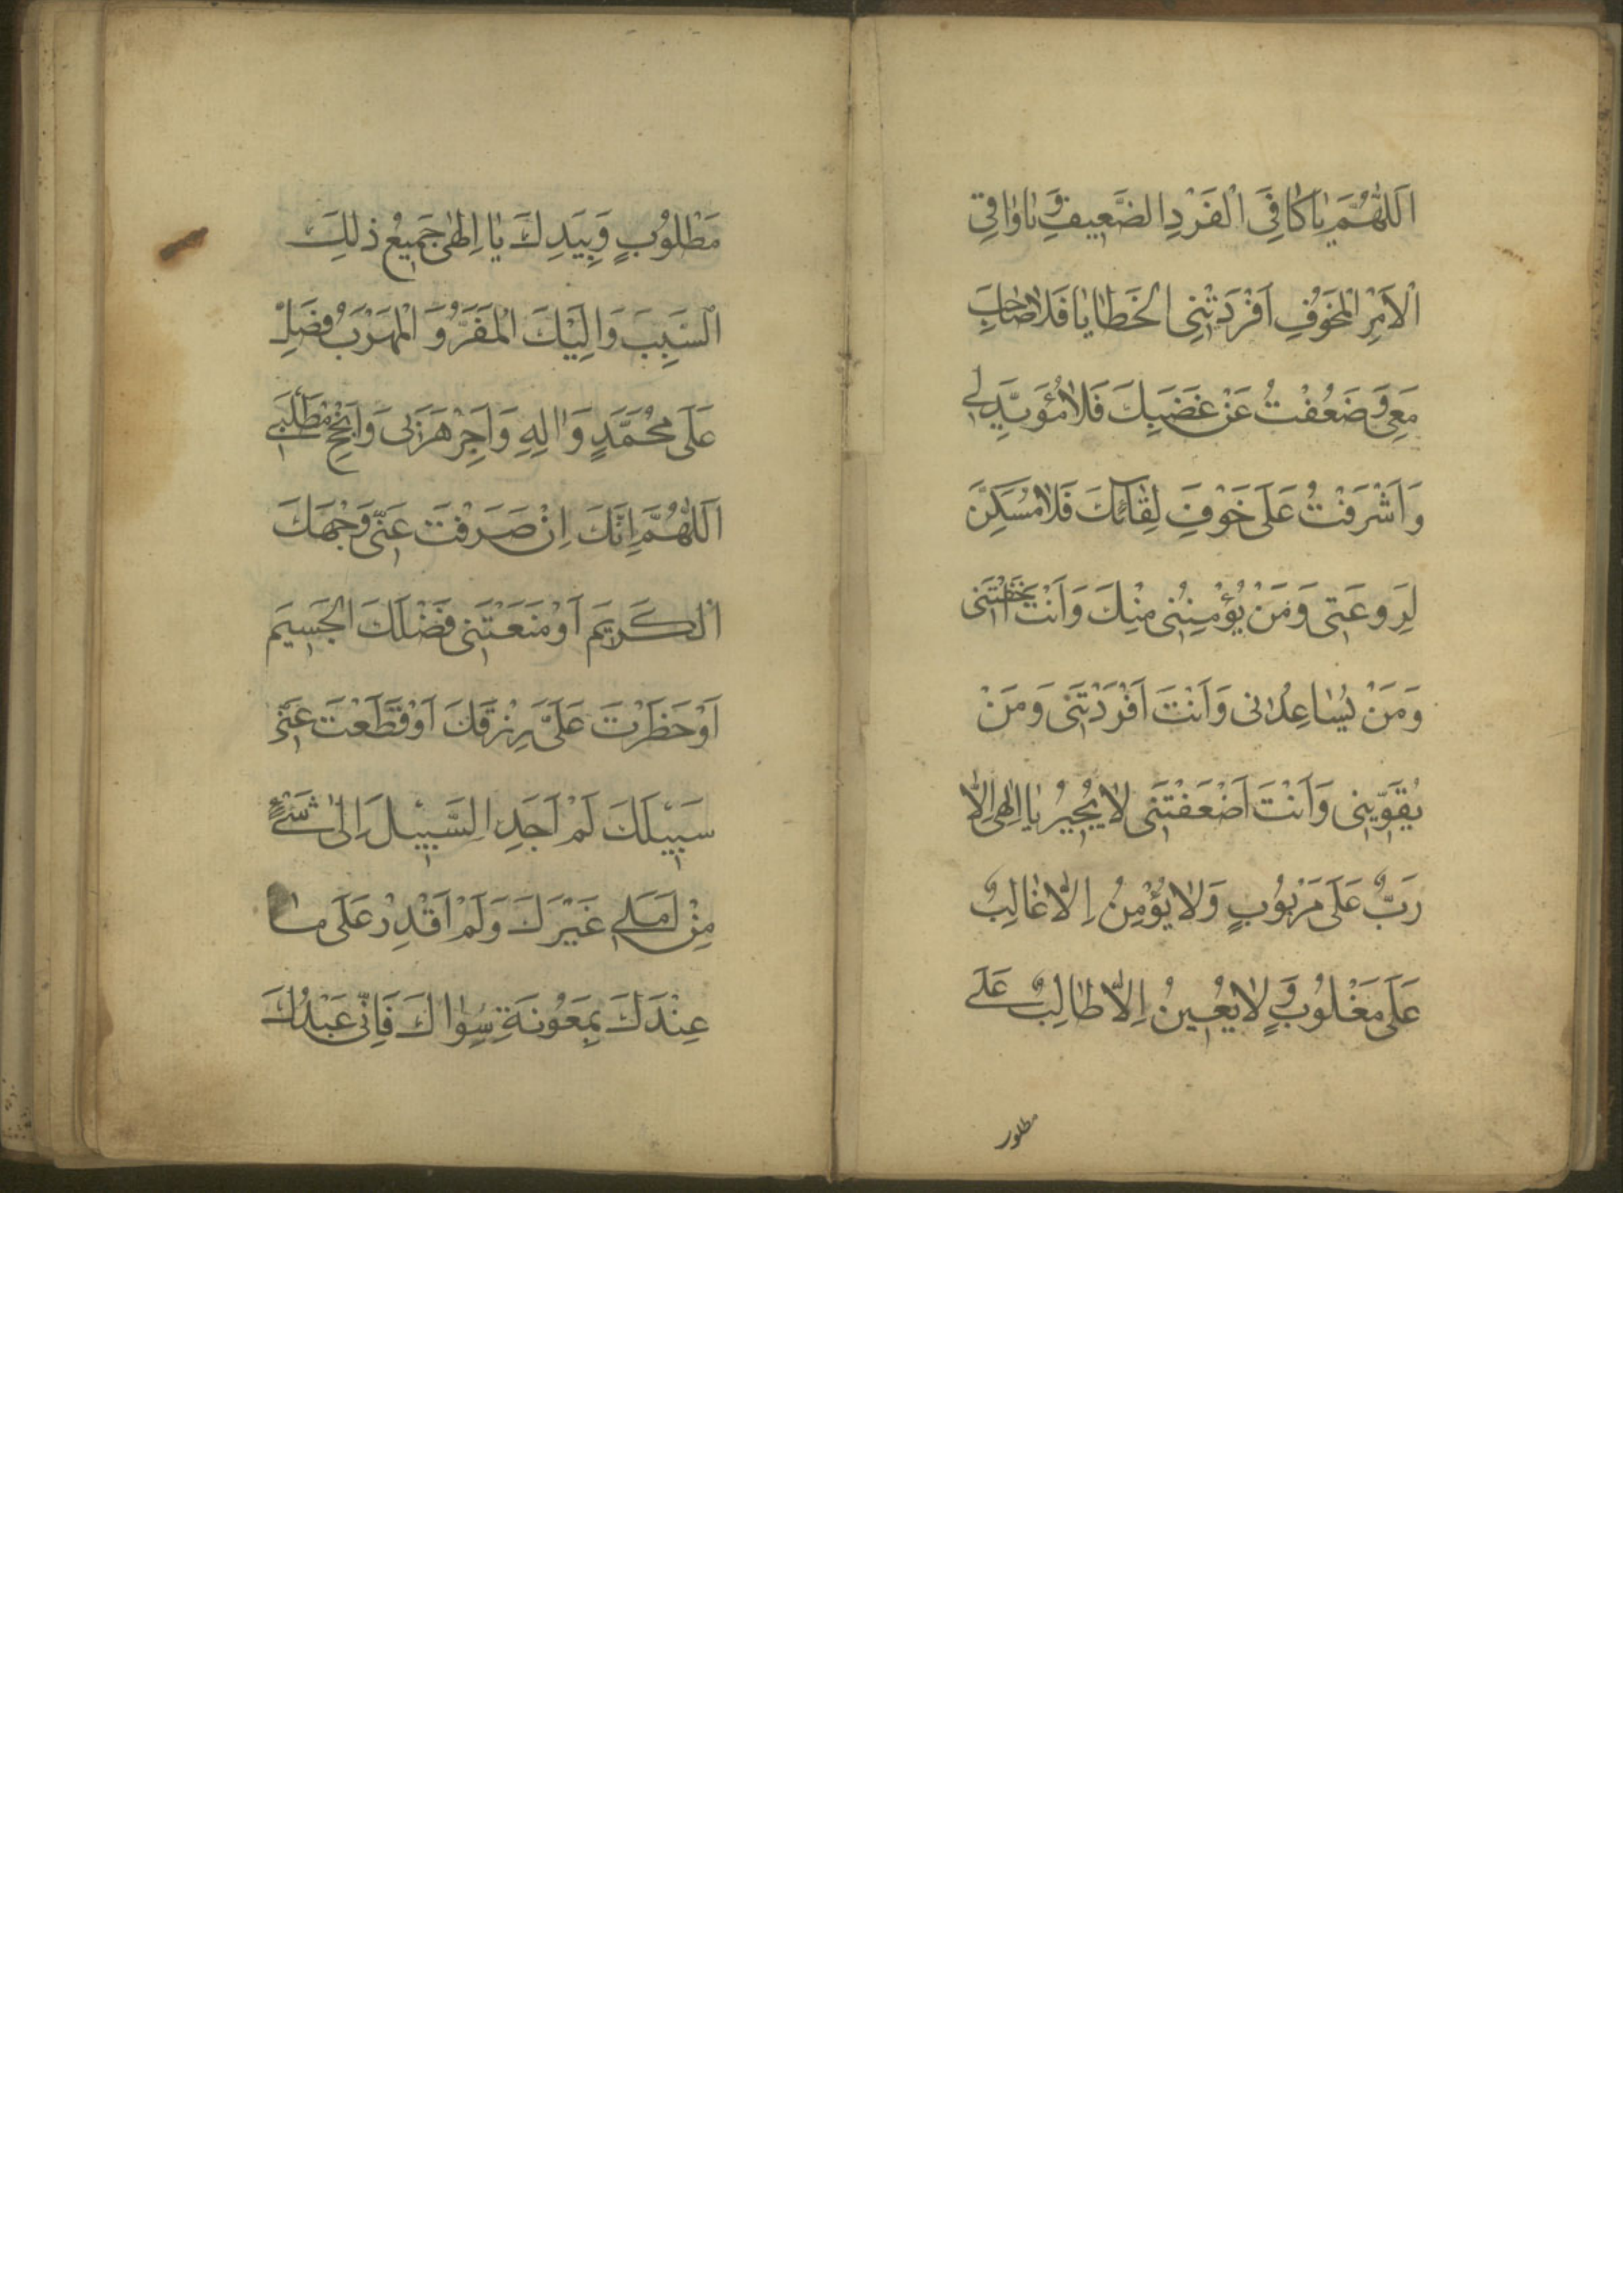 اَللّٰهُمَّ يَا كَافِيَ الْفَرْدِ الضَّعِيفِ وَ يَا وَاقِيَ
الْاَمْرِ الْمَخُوْفِ اَفْرَدَتْنِى الْخَطَايَا فَلَا صَاحِبَ
مَعِى وَ ضَعُفْتُ عَنْ غَضَبِكَ فَلَا مُؤَيِّدَ لِى
وَ اَشْرَفْتُ عَلَى خَوْفِ لِقَآئِكَ فَلَا مُسَكِّنَ
لِرَوْعَتِى وَ مَنْ يُؤْمِنُنِى مِنْكَ وَ اَنْتَ اَخَفْتَنِى
وَ مَنْ يُسَاعِدُنِى وَ اَنْتَ اَفْرَدْتَنِى وَ مَنْ
يُقَوِّينِى وَ اَنْتَ اَضْعَفْتَنِى لَا يُجِيرُ يَا اِلٰهِى اِلَّا
رَبٌّ عَلَى مَرْبُوْبٍ وَ لَا يُؤْمِنُ اِلَّا غَالِبٌ
عَلَى مَغْلُوْبٍ وَ لَا يُعِينُ اِلَّا طَالِبٌ عَلَى
مطلوب
مَطْلُوْبٍ وَ بِيَدِكَ يَا اِلٰهِى جَمِيعُ ذٰلِكَ
السَّبَبِ وَ اِلَيْكَ الْمَفَرُّ وَ الْمَهْرَبُ فَصَلِّ
عَلَى مُحَمَّدٍ وَ اٰلِهِ وَ اَجِرْ هَرَبِى وَ اَنْجِحْ مَطْلَبِى
اَللّٰهُمَّ اِنَّكَ اِنْ صَرَفْتَ عَنِّى وَجْهَكَ
الْكَرِيمَ اَوْ مَنَعْتَنِى فَضْلَكَ الْجَسِيمَ
اَوْ حَظَرْتَ عَلَىَّ رِزْقَكَ اَوْ قَطَعْتَ عَنِّى
سَبِيْلَكَ لَمْ اَجِدِ السَّبِيْلَ اِلٰى شَىْءٍ
مِنْ اَمَلِى غَيْرَكَ وَ لَمْ اَقْدِرْ عَلَى مَا
عِنْدَكَ بِمَعُوْنَةِ سِوَاكَ فَاِنِّى عَبْدُكَ